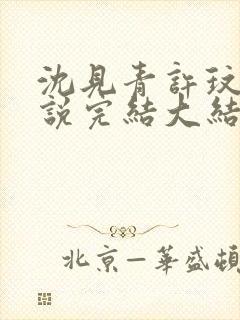 沈見青許玟
說完結大結
北京—華盛頓